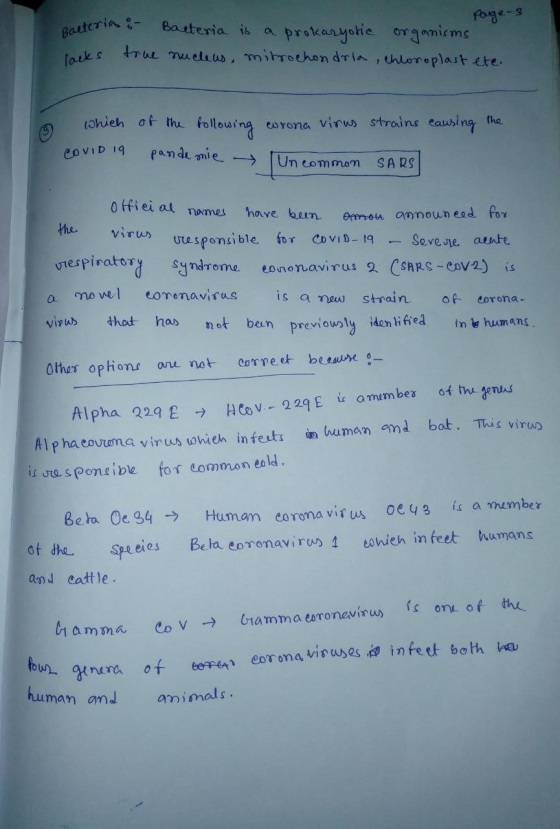 Page-3
Bacteria :- Bacteria is a prokaryotic organisms
lacks true nucleus, mitrochondria, chloroplast etc.
③ which of the following corona virus strains causing the
COVID 19 pandemic → Uncommon SARS
Official names have been announced for
the virus responsible for COVID-19 – Severe acute
respiratory syndrome coronavirus 2 (SARS-COV2) is
a novel coronavirus is a new strain of corona-
virus that has not been previously identified in humans.
Other options are not correct because :-
Alpha 229 E → HCoV-229E is a member of the genus
Alphacorona virus which infects human and bat. This virus
is responsible for common cold.
Beta Oc 34 → Human coronavirus OC43 is a member
of the species Beta coronavirus 1 which infect humans
and cattle.
Gamma CoV → Gammacoronavirus is one of the
four genera of coronaviruses infect both
human and animals.